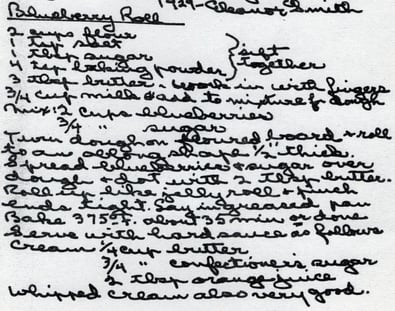 1929-Eleanor Smith
Blueberry Roll
2 cups flour
1 tsp salt
1 tbsp sugar
4 tsp baking powder } sift together
3 tbsp butter - work in with fingers
3/4 cup milk & add to mixture for dough
Mix: 2 cups blueberries
3/4 " sugar
Turn dough on floured board & roll
to an oblong shape 1/2" thick.
Spread blueberries & sugar over
dough & dot with 2 tbsp butter.
Roll up like jelly roll & pinch
ends tight. Lay in greased pan
Bake 375°F. about 35 min or done
Serve with hard sauce as follows
Cream 1/4 cup butter
3/4 " confectioner's sugar
2 tbsp orange juice
Whipped cream also very good.